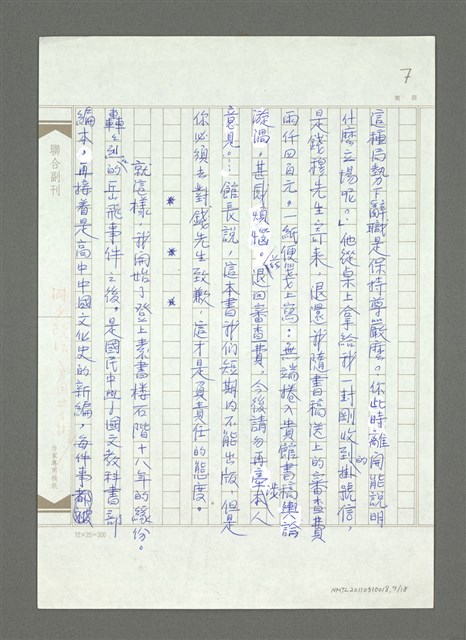 7
這種局勢下辭職是保持尊嚴麼？你此時離開能說明
什麼立場呢？」他從桌上拿給我一封剛收到的掛號信，
是錢穆先生寄來，退還我隨書稿送上的審查費
兩仟四百元。一紙便箋上寫：無端捲入貴館書稿輿論
漩渦，甚感煩惱。茲退回審查費，今後請勿再牽涉本人
意見……館長說，這本書我們短期內不能出版，但是
你必須去對錢先生致歉，這才是負責任的態度。
＊ ＊ ＊
就這樣，我開始了登上素書樓石階十八年的緣份。
轟轟烈烈的岳飛事件之後。是國民中學國文教科書部
編本，再接着是高中中國文化史的新編，每件事都被
聯合副刊
作家專用稿紙
12×25=300
NMTL20110310018_7/18